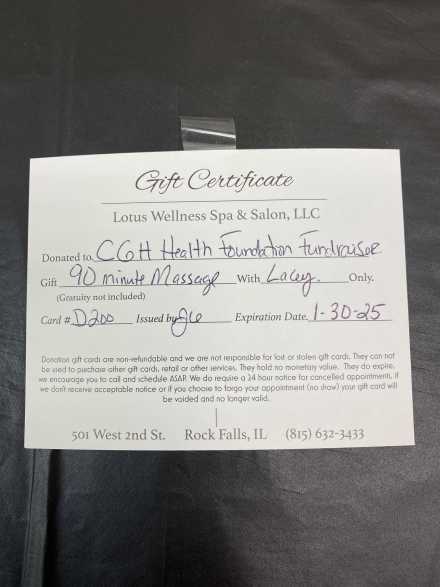 Gift Certificate
Lotus Wellness Spa & Salon, LLC
Donated to CGH Health Foundation Fundraiser
Gift 90 minute Massage With Lacey. Only.
(Gratuity not included)
Card # D200 Issued by Expiration Date 1-30-25
Donation gift cards are non-refundable and we are not responsible for lost or stolen gift cards. They can not
be used to purchase other gift cards, retail or other services. They hold no monetary value. They do expire,
we encourage you to call and schedule ASAP. We do require a 24 hour notice for cancelled appointments, if
we don't receive acceptable notice or if you choose to forgo your appointment (no show) your gift card will
be voided and no longer valid.
501 West 2nd St. Rock Falls, IL (815) 632-3433